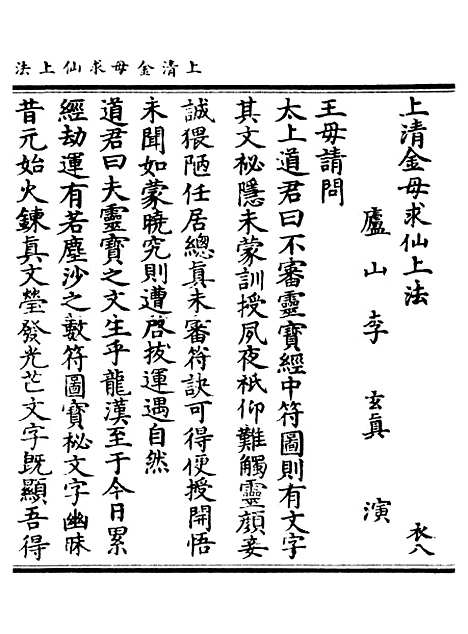 上清金母求仙上法
上清金母求仙上法　衣八
盧山李玄眞演
王母請問
太上道君曰不審靈寶經中符圖則有文字
其文秘隱未蒙訓授夙夜祇仰難觸靈顔妾
誠猥陋任居總眞未審符訣可得便授開悟
未聞如蒙曉究則遭啓拔運遇自然
道君曰夫靈寶之文生乎龍漢至于今日累
經劫運有若塵沙之數符圖寶秘文字幽昧
昔元始火鍊眞文瑩發光芒文字旣顯吾得